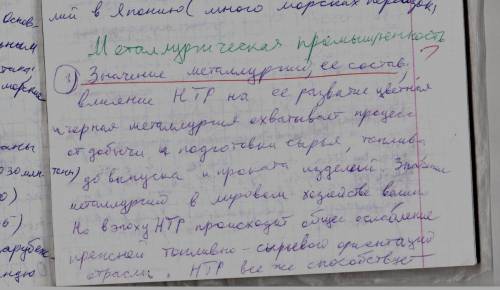 Основ-
лий в Японию (много морских перевозок,
ьным
Металлургическая промышленность
?
3) Значение металлургии, ее состав,
морские
влияние НТР на ее развитие цветная
и черная металлургия охватывает процесс
от добычи и подготовки сырья, топлив
до выпуска и проката изделий. Значение
металлургии в мировом хозяйстве велико
Но в эпоху НТР происходит общее ослабление
прежней топливно-сырьевой ориентации
отрасли. НТР все же способствует